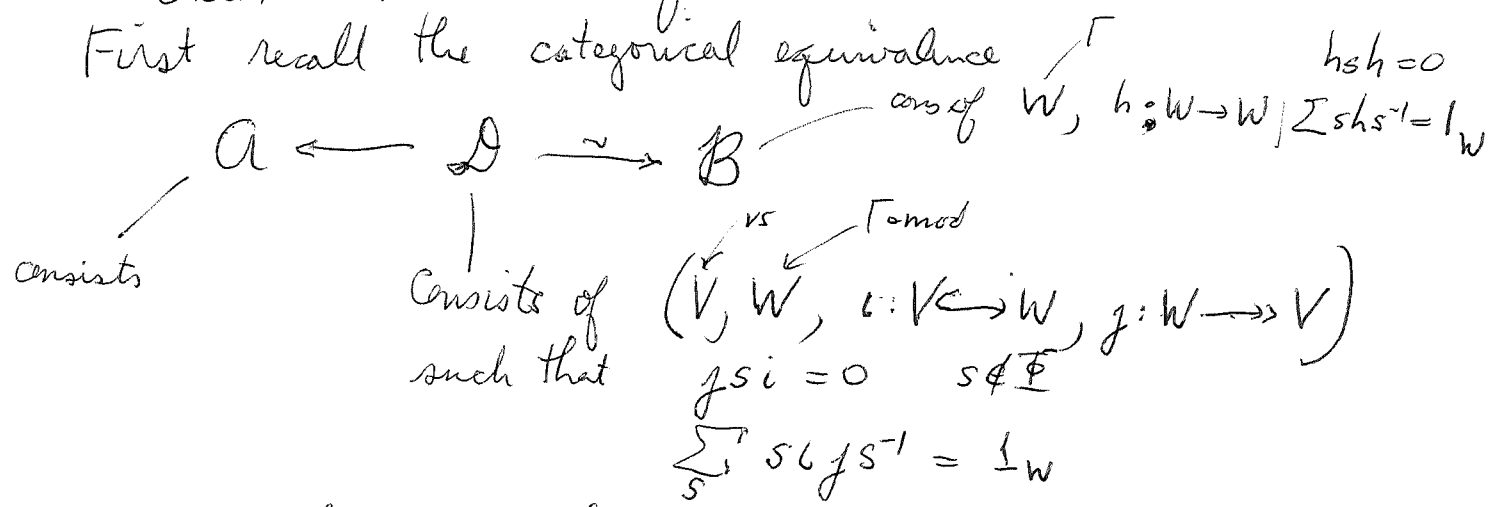 First recall the categorical equivalence Γ hsh = 0
A ← D ⥲ B cons of W, h : W → W | Σ shs⁻¹ = 1_W
vs Γ-mod
consists
Consists of (V, W, i : V ↪ W, j : W ↠ V)
such that jsi = 0 s ∉ Φ
Σ_s s i j s⁻¹ = 1_W